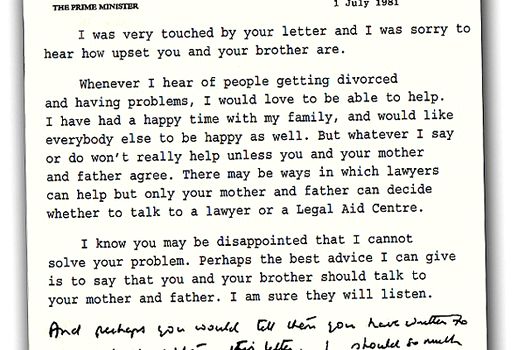 THE PRIME MINISTER
1 July 1981
I was very touched by your letter and I was sorry to
hear how upset you and your brother are.
Whenever I hear of people getting divorced
and having problems, I would love to be able to help.
I have had a happy time with my family, and would like
everybody else to be happy as well. But whatever I say
or do won't really help unless you and your mother
and father agree. There may be ways in which lawyers
can help but only your mother and father can decide
whether to talk to a lawyer or a Legal Aid Centre.
I know you may be disappointed that I cannot
solve your problem. Perhaps the best advice I can give
is to say that you and your brother should talk to
your mother and father. I am sure they will listen.
And perhaps you would tell them you have written to
this letter. I should so much